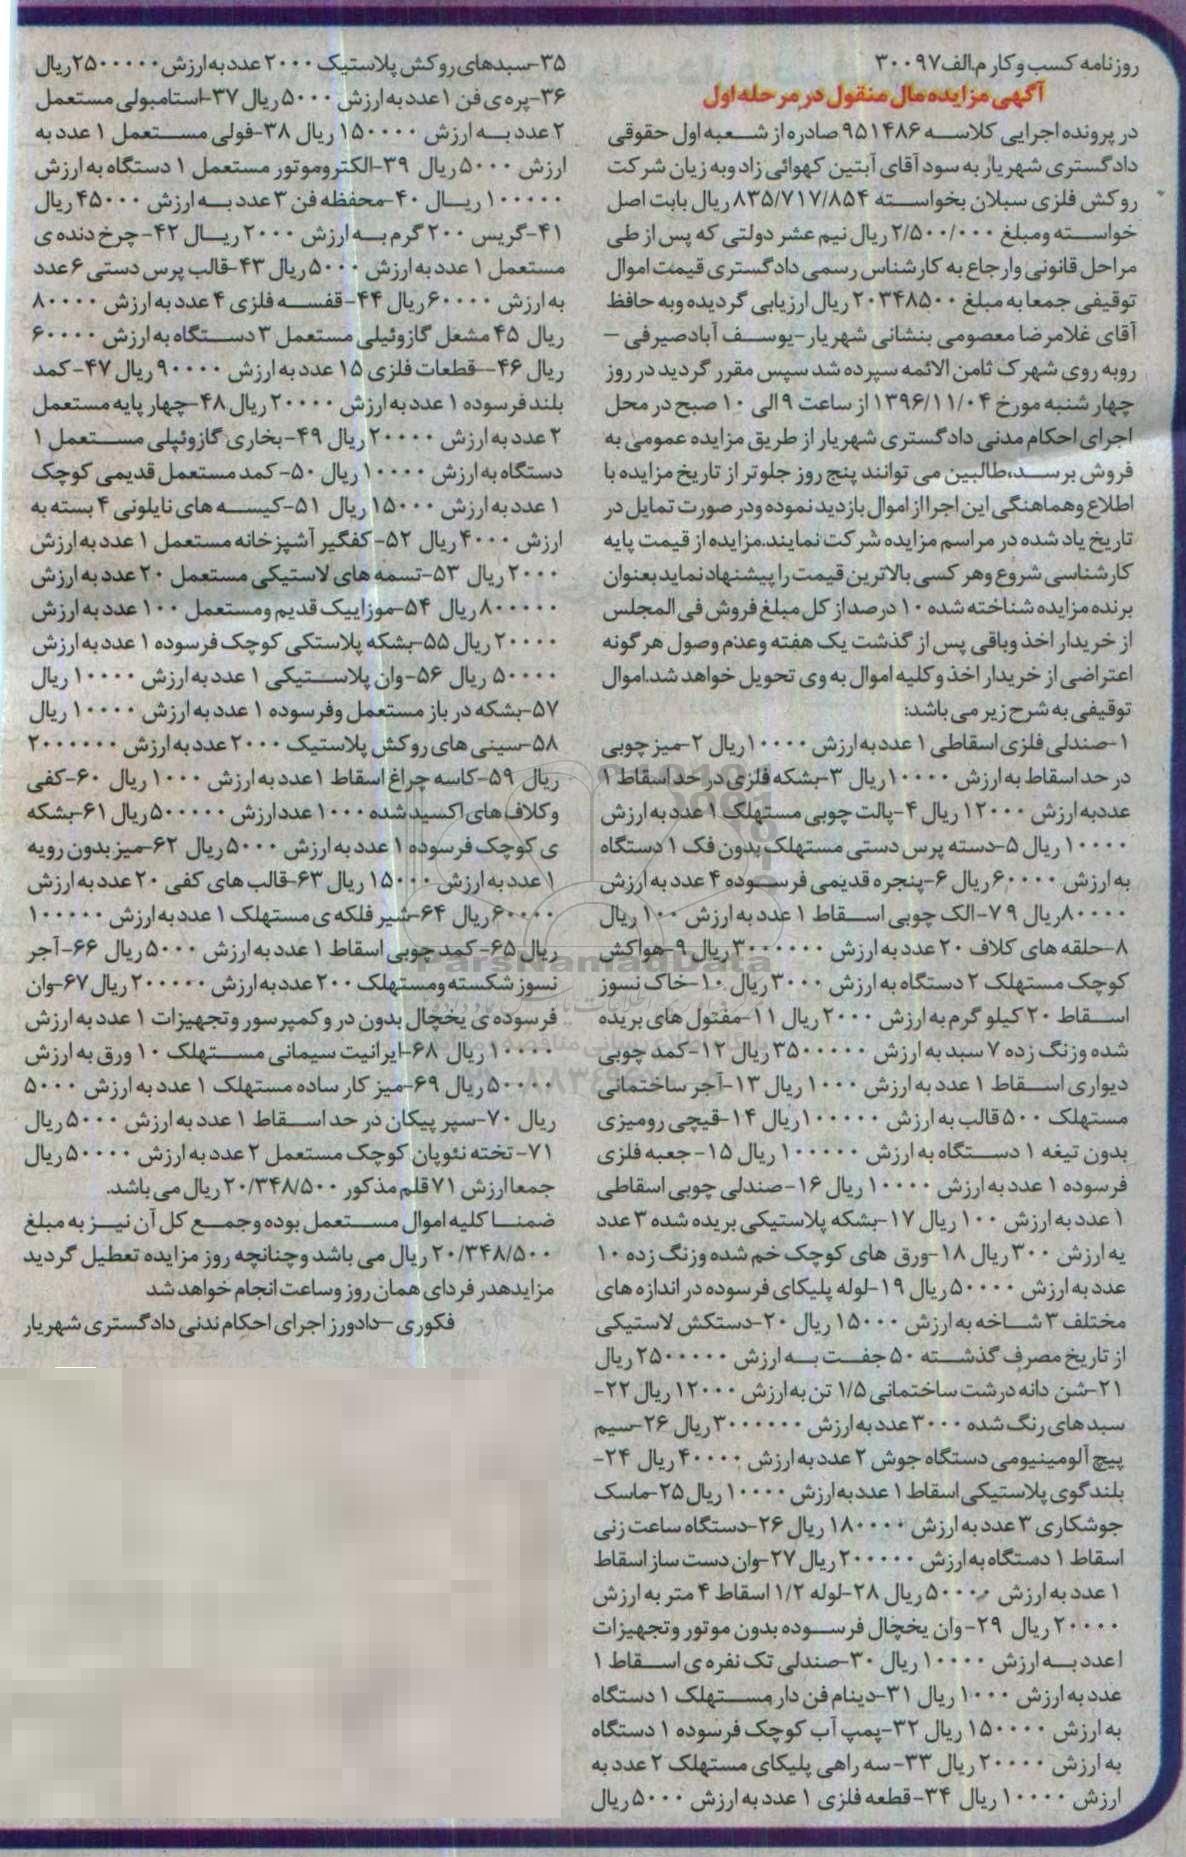 روزنامه کسب و کار م.الف ۳۰۰۹۷
آگهی مزایده مال منقول در مرحله اول
در پرونده اجرایی کلاسه ۹۵۱۴۸۶ صادره از شعبه اول حقوقی
دادگستری شهریار به سود آقای آبتین کهوائی زاد وبه زیان شرکت
روکش فلزی سبلان بخواسته ۸۳۵/۷۱۷/۸۵۴ ریال بابت اصل
خواسته ومبلغ ۲/۵۰۰/۰۰۰ ریال نیم عشر دولتی که پس از طی
مراحل قانونی وارجاع به کارشناس رسمی دادگستری قیمت اموال
توقیفی جمعا به مبلغ ۲۰۳۴۸۵۰۰ ریال ارزیابی گردیده وبه حافظ
آقای غلامرضا معصومی بنشانی شهریار-یوسف آبادصیرفی –
روبه روی شهرک ثامن الائمه سپرده شد سپس مقرر گردید در روز
چهارشنبه مورخ ۱۳۹۶/۱۱/۰۴ از ساعت ۹ الی ۱۰ صبح در محل
اجرای احکام مدنی دادگستری شهریار از طریق مزایده عمومی به
فروش برسد،طالبین می توانند پنج روز جلوتر از تاریخ مزایده با
اطلاع وهماهنگی این اجرا از اموال بازدید نموده ودر صورت تمایل در
تاریخ یاد شده در مراسم مزایده شرکت نمایند.مزایده از قیمت پایه
کارشناسی شروع وهر کسی بالاترین قیمت را پیشنهاد نماید بعنوان
برنده مزایده شناخته شده ۱۰ درصد از کل مبلغ فروش فی المجلس
از خریدار اخذ وباقی پس از گذشت یک هفته وعدم وصول هرگونه
اعتراضی از خریدار اخذ و کلیه اموال به وی تحویل خواهد شد.اموال
توقیفی به شرح زیر می باشد:
۱-صندلی فلزی اسقاطی ۱ عدد به ارزش ۱۰۰۰۰ ریال ۲-میز چوبی
در حد اسقاط به ارزش ۱۰۰۰۰ ریال ۳-بشکه فلزی در حد اسقاط ۱
عدد به ارزش ۱۲۰۰۰ ریال ۴-پالت چوبی مستهلک ۱ عدد به ارزش
۱۰۰۰۰ ریال ۵-دسته پرس دستی مستهلک بدون فک ۱ دستگاه
به ارزش ۶۰۰۰۰ ریال ۶-پنجره قدیمی فرسوده ۴ عدد به ارزش
۸۰۰۰۰ ریال ۷۹-الک چوبی اسقاط ۱ عدد به ارزش ۱۰۰ ریال
۸-حلقه های کلاف ۲۰ عدد به ارزش ۳۰۰۰۰۰۰ ریال ۹-هواکش
کوچک مستهلک ۲ دستگاه به ارزش ۳۰۰۰ ریال ۱۰-خاک نسوز
اسقاط ۲۰ کیلو گرم به ارزش ۲۰۰۰ ریال ۱۱-مفتول های بریده
شده وزنگ زده ۷ سبد به ارزش ۳۵۰۰۰۰۰ ریال ۱۲-کمد چوبی
دیواری اسقاط ۱ عدد به ارزش ۱۰۰۰ ریال ۱۳-آجر ساختمانی
مستهلک ۵۰۰ قالب به ارزش ۱۰۰۰۰۰ ریال ۱۴-قیچی رومیزی
بدون تیغه ۱ دستگاه به ارزش ۱۰۰۰۰۰ ریال ۱۵-جعبه فلزی
فرسوده ۱ عدد به ارزش ۱۰۰۰۰ ریال ۱۶-صندلی چوبی اسقاطی
۱ عدد به ارزش ۱۰۰ ریال ۱۷-بشکه پلاستیکی بریده شده ۳ عدد
به ارزش ۳۰۰ ریال ۱۸-ورق های کوچک خم شده وزنگ زده ۱۰
عدد به ارزش ۵۰۰۰۰ ریال ۱۹-لوله پلیکای فرسوده در اندازه های
مختلف ۳ شاخه به ارزش ۱۵۰۰۰ ریال ۲۰-دستکش لاستیکی
از تاریخ مصرف گذشته ۵۰ جفت به ارزش ۲۵۰۰۰۰۰ ریال
۲۱-شن دانه درشت ساختمانی ۱/۵ تن به ارزش ۱۲۰۰۰ ریال ۲۲-
سبدهای رنگ شده ۳۰۰۰ عدد به ارزش ۳۰۰۰۰۰۰ ریال ۲۶-سیم
پیچ آلومینیومی دستگاه جوش ۲ عدد به ارزش ۴۰۰۰۰ ریال ۲۴-
بلندگوی پلاستیکی اسقاط ۱ عدد به ارزش ۱۰۰۰۰ ریال ۲۵-ماسک
جوشکاری ۳ عدد به ارزش ۱۸۰۰۰۰ ریال ۲۶-دستگاه ساعت زنی
اسقاط ۱ دستگاه به ارزش ۲۰۰۰۰۰ ریال ۲۷-وان دست ساز اسقاط
۱ عدد به ارزش ۵۰۰۰۰ ریال ۲۸-لوله ۱/۲ اسقاط ۴ متر به ارزش
۲۰۰۰۰ ریال ۲۹-وان یخچال فرسوده بدون موتور وتجهیزات
۱عدد به ارزش ۱۰۰۰۰ ریال ۳۰-صندلی تک نفره ی اسقاط ۱
عدد به ارزش ۱۰۰۰ ریال ۳۱-دینام فن دار مستهلک ۱ دستگاه
به ارزش ۱۵۰۰۰۰ ریال ۳۲-پمپ آب کوچک فرسوده ۱ دستگاه
به ارزش ۲۰۰۰۰ ریال ۳۳-سه راهی پلیکای مستهلک ۲ عدد به
ارزش ۱۰۰۰۰ ریال ۳۴-قطعه فلزی ۱ عدد به ارزش ۵۰۰۰ ریال
۳۵-سبدهای روکش پلاستیک ۲۰۰۰ عدد به ارزش ۲۵۰۰۰۰۰ ریال
۳۶-پره ی فن ۱ عدد به ارزش ۵۰۰۰ ریال ۳۷-استامبولی مستعمل
۲ عدد به ارزش ۱۵۰۰۰۰ ریال ۳۸-فولی مستعمل ۱ عدد به
ارزش ۵۰۰۰ ریال ۳۹-الکتروموتور مستعمل ۱ دستگاه به ارزش
۱۰۰۰۰۰ ریال ۴۰-محفظه فن ۳ عدد به ارزش ۴۵۰۰۰ ریال
۴۱-گریس ۲۰۰ گرم به ارزش ۲۰۰۰ ریال ۴۲-چرخ دنده ی
مستعمل ۱ عدد به ارزش ۵۰۰۰ ریال ۴۳-قالب پرس دستی ۶ عدد
به ارزش ۶۰۰۰۰ ریال ۴۴-قفسه فلزی ۴ عدد به ارزش ۸۰۰۰۰
ریال ۴۵ مشعل گازوئیلی مستعمل ۳ دستگاه به ارزش ۶۰۰۰۰
ریال ۴۶-قطعات فلزی ۱۵ عدد به ارزش ۹۰۰۰۰ ریال ۴۷-کمد
بلند فرسوده ۱ عدد به ارزش ۲۰۰۰۰ ریال ۴۸-چهار پایه مستعمل
۲ عدد به ارزش ۲۰۰۰۰ ریال ۴۹-بخاری گازوئیلی مستعمل ۱
دستگاه به ارزش ۱۰۰۰۰ ریال ۵۰-کمد مستعمل قدیمی کوچک
۱ عدد به ارزش ۱۵۰۰۰ ریال ۵۱-کیسه های نایلونی ۴ بسته به
ارزش ۴۰۰۰ ریال ۵۲-کفگیر آشپزخانه مستعمل ۱ عدد به ارزش
۲۰۰۰ ریال ۵۳-تسمه های لاستیکی مستعمل ۲۰ عدد به ارزش
۸۰۰۰۰۰ ریال ۵۴-موزاییک قدیم ومستعمل ۱۰۰ عدد به ارزش
۲۰۰۰۰ ریال ۵۵-بشکه پلاستکی کوچک فرسوده ۱ عدد به ارزش
۵۰۰۰۰ ریال ۵۶-وان پلاستیکی ۱ عدد به ارزش ۱۰۰۰۰ ریال
۵۷-بشکه درباز مستعمل وفرسوده ۱ عدد به ارزش ۱۰۰۰۰ ریال
۵۸-سینی های روکش پلاستیک ۲۰۰۰ عدد به ارزش ۲۰۰۰۰۰۰
ریال ۵۹-کاسه چراغ اسقاط ۱ عدد به ارزش ۱۰۰۰ ریال ۶۰-کفی
و کلاف های اکسید شده ۱۰۰۰ عدد ارزش ۵۰۰۰۰۰ ریال ۶۱-بشکه
ی کوچک فرسوده ۱ عدد به ارزش ۵۰۰۰ ریال ۶۲-میز بدون رویه
۱ عدد به ارزش ۱۵۰۰۰ ریال ۶۳-قالب های کفی ۲۰ عدد به ارزش
۶۰۰۰۰ ریال ۶۴-شیر فلکه ی مستهلک ۱ عدد به ارزش ۱۰۰۰۰۰
ریال ۶۵-کمد چوبی اسقاط ۱ عدد به ارزش ۵۰۰۰ ریال ۶۶-آجر
نسوز شکسته ومستهلک ۲۰۰ عدد به ارزش ۲۰۰۰۰۰ ریال ۶۷-وان
فرسوده ی یخچال بدون در و کمپرسور وتجهیزات ۱ عدد به ارزش
۱۰۰۰۰ ریال ۶۸-ایرانیت سیمانی مستهلک ۱۰ ورق به ارزش
۵۰۰۰۰ ریال ۶۹-میز کار ساده مستهلک ۱ عدد به ارزش ۵۰۰۰
ریال ۷۰-سپر پیکان در حد اسقاط ۱ عدد به ارزش ۵۰۰۰ ریال
۷۱-تخته نئوپان کوچک مستعمل ۲ عدد به ارزش ۵۰۰۰۰ ریال
جمعا ارزش ۷۱ قلم مذکور ۲۰/۳۴۸/۵۰۰ ریال می باشد.
ضمنا کلیه اموال مستعمل بوده وجمع کل آن نیز به مبلغ
۲۰/۳۴۸/۵۰۰ ریال می باشد وچنانچه روز مزایده تعطیل گردید
مزایدهدر فردای همان روز وساعت انجام خواهد شد
فکوری –دادورز اجرای احکام ندنی دادگستری شهریار
ParsNamadData